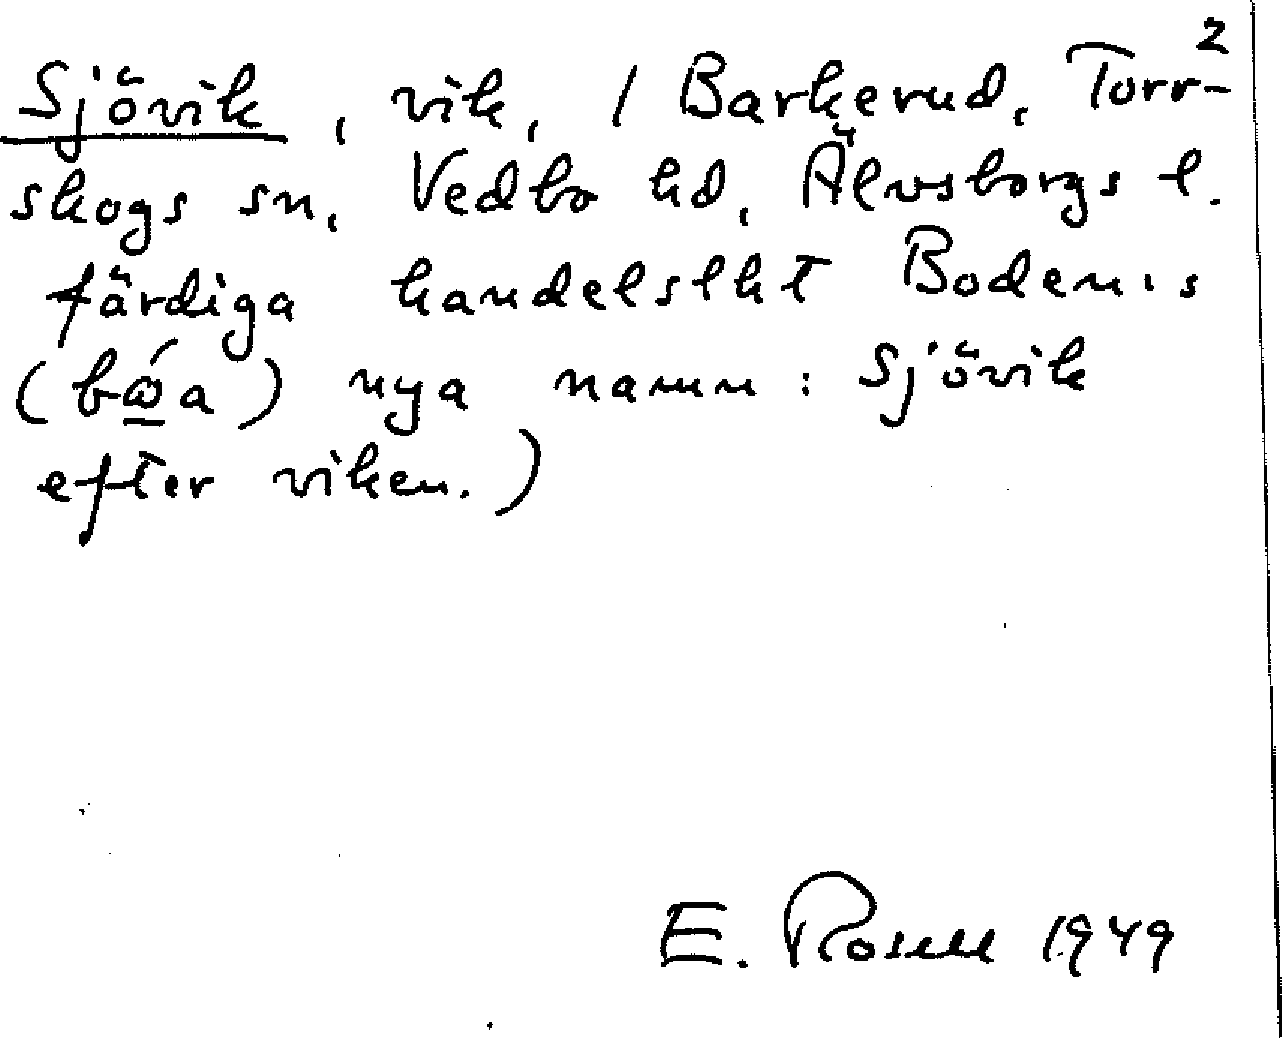 2
Sjövik, vik, / Barkerud, Torr-
skogs sn, Vedbo hd, Älvsborgs l.
färdiga handelslht Boden's
(bǿ̲a) nya namn: Sjövik
efter viken.)
E. Rosell 1949